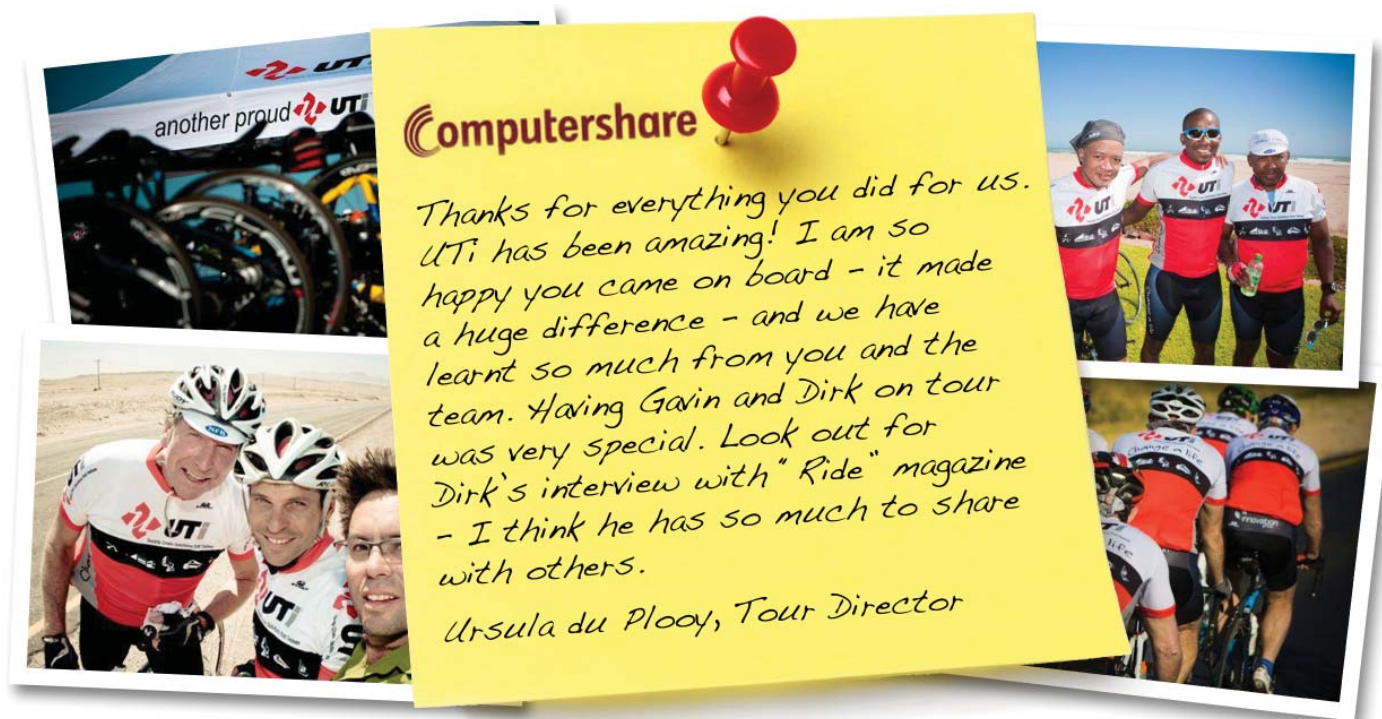 another proud UTi
Computershare
Thanks for everything you did for us.
UTi has been amazing! I am so
happy you came on board - it made
a huge difference - and we have
learnt so much from you and the
team. Having Gavin and Dirk on tour
was very special. Look out for
Dirk's interview with "Ride" magazine
- I think he has so much to share
with others.
Ursula du Plooy, Tour Director
UTi
UTi
UTi
UTi
UTi
UTi
Change a life
innovation
life